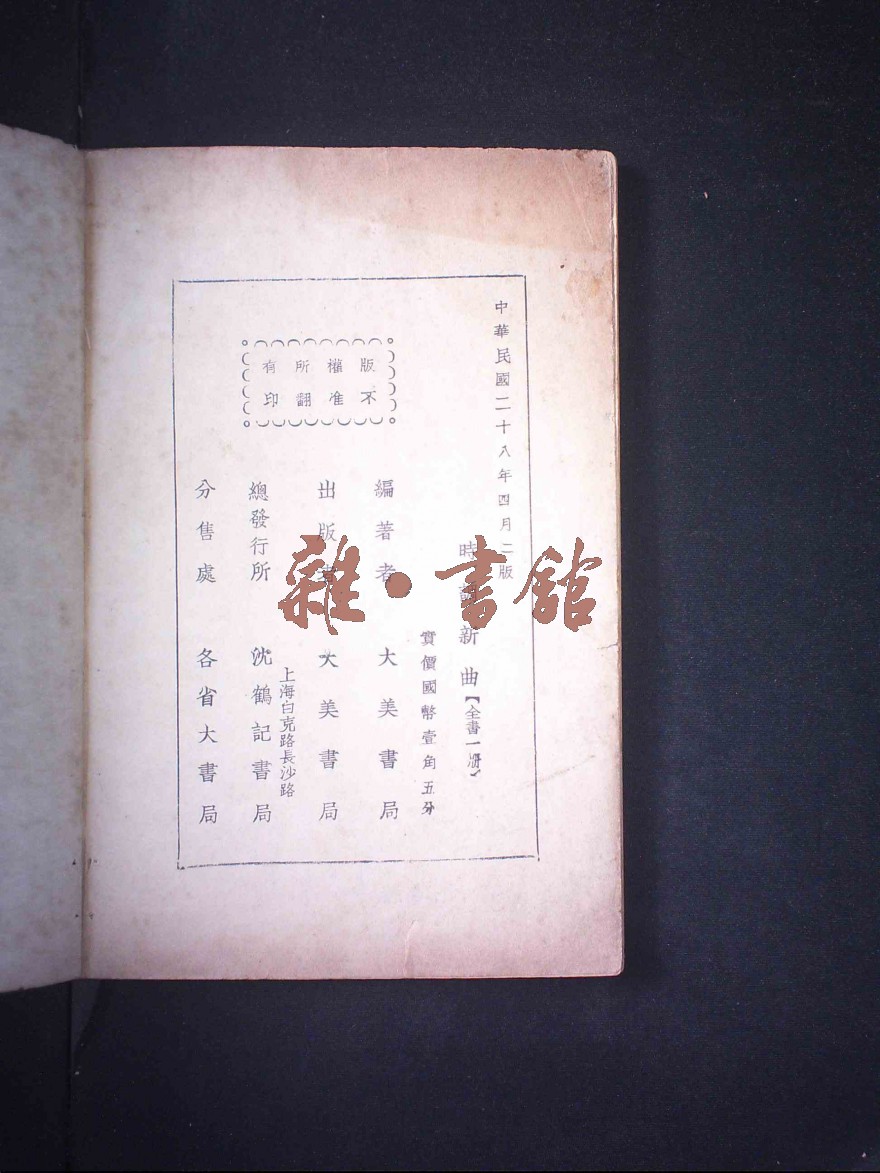 中華民國二十八年四月二版
時調新曲【全書一冊】
實價國幣壹角五分
版權所有
不准翻印
編著者 大美書局
出版者 大美書局
上海白克路長沙路
總發行所 沈鶴記書局
分售處 各省大書局
雜·書館